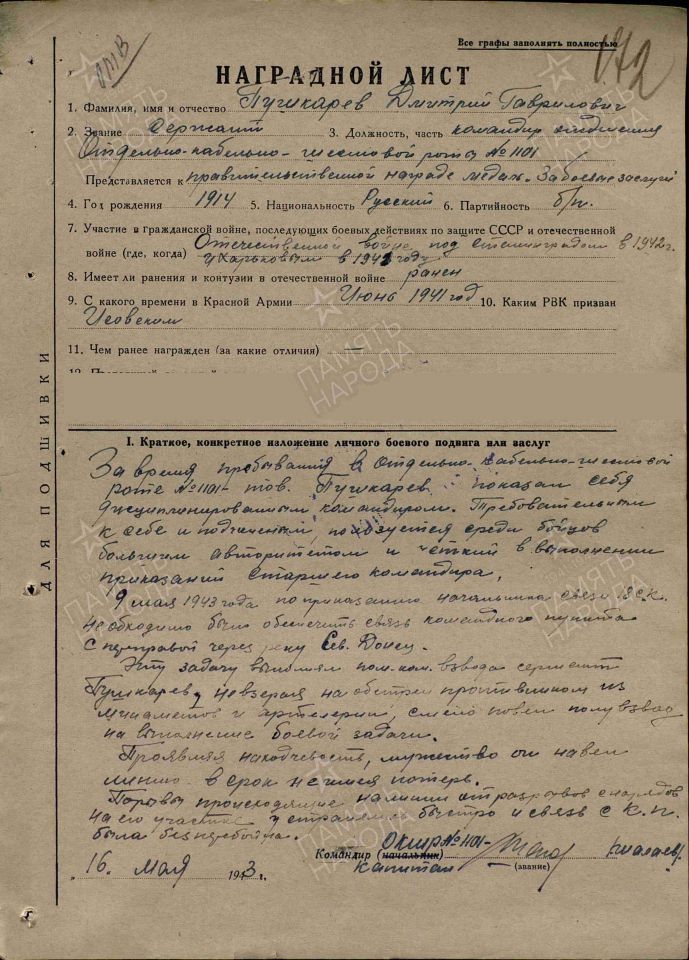 Все графы заполнять полностью
172
НАГРАДНОЙ ЛИСТ
1. Фамилия, имя и отчество Пушкарев Дмитрий Гаврилович
2. Звание Сержант 3. Должность, часть командир отделения
Отдельно-кабельно-шестовой роты №1101
Представляется к правительственной награде медаль "За боевые заслуги
4. Год рождения 1914 5. Национальность Русский 6. Партийность б/п.
7. Участие в гражданской войне, последующих боевых действиях по защите СССР и отечественной
войне (где, когда) Отечественной войне под Сталинградом в 1942 г.
и Харьковым в 1943 году
8. Имеет ли ранения и контузии в отечественной войне ранен
9. С какого времени в Красной Армии Июнь 1941 год 10. Каким РВК призван
11. Чем ранее награжден (за какие отличия) —
ДЛЯ ПОДШИВКИ
I. Краткое, конкретное изложение личного боевого подвига или заслуг
За время пребывания в Отдельно-кабельно-шестовой
роте №1101- тов. Пушкарев показал себя
дисциплинированым командиром. Требовательным
к себе и подчиненым, пользуется среди бойцов
большим авторитетом и чёткий в выполнении
приказаний старшего командира.
9 мая 1943 года по приказанию начальника связи С.К.
необходимо было обеспечить связь командного пункта
с переправой через реку Сев. Донец.
Эту задачу выполнял пом. ком. взвода сержант
Пушкарев, невзирая на обстрел противником из
минометов и артелерии, смело повел полувзвод
на выполнение боевой задачи.
Проявляя находчивость, мужество он навел
линию в срок не имея потерь.
Порывы происходящие на линии от разрывов снарядов
на его участке устранялись быстро и связь с К.п.
была безперебойна.
ОКШР №1101-
Командир (начальник)
капитан (звание)
"16" мая 1943 г.
ПАМЯТЬ НАРОДА